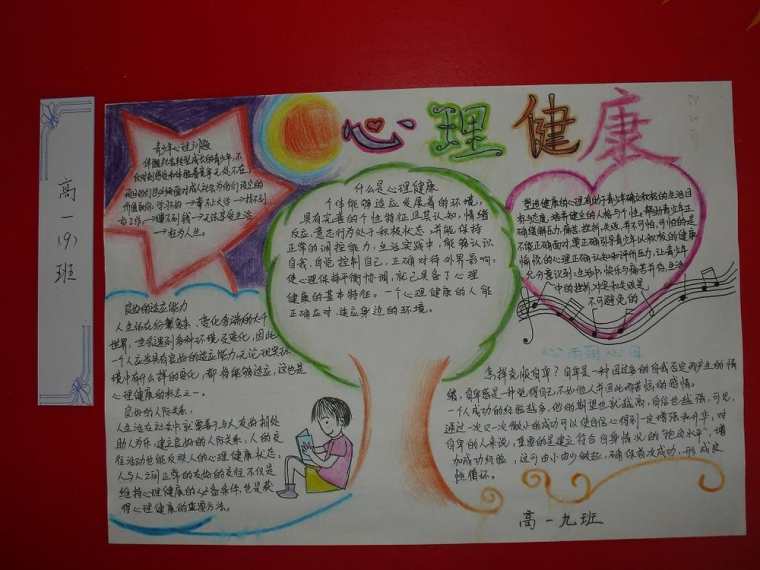 高一(9)班
心理健康
青少年心理问题
什么是心理健康
个体能够适应发展着的环境，
具有完善的个性特征且其认知，情绪
反应，意志行为处于积极状态，并能保持
正常的调控能力，生活实践中，能够认识
自我，自觉控制自己，正确对待外界影响，
使心理保持平衡协调，就已具备了心理
健康的基本特征。一个心理健康的人能
正确应对、适应身边的环境。
塑造健康的心理有助于青少年确立积极的生活目
中的挫折冲突和失误是
不可避免的
良好的适应能力
人生活在纷繁复杂、变化多端的大千
世界，一生会遇到多种环境及变化，因此
一个人应当具有良好的适应能力，无论现实环
境有什么样的变化，都将能够适应，这也是
心理健康的标志之一。
良好的人际关系：
人生活在社会中就要善于与人友好相处
助人为乐，建立良好的人际关系，人的交
往活动也能反映人的心理健康状态，
人与人之间正常的友好的交往不仅是
维持心理健康的必备条件，也是获
得心理健康的重要方法。
怎样克服自卑？自卑是一种因过多的自我否定而产生的情
绪，自卑感是一种觉得自己不如他人并因此而苦恼的感情。
一个人成功的经验越多，他的期望也就越高，自信也越强，可见，
通过一次又一次微小的成功可以使自信心得到一定增强和升华，对
自卑的人来说，重要的是建立符合自身情况的“抱负水平”，增
加成功经验，这可由小由少做起，确保首次成功，形成良
性循环。
高一九班